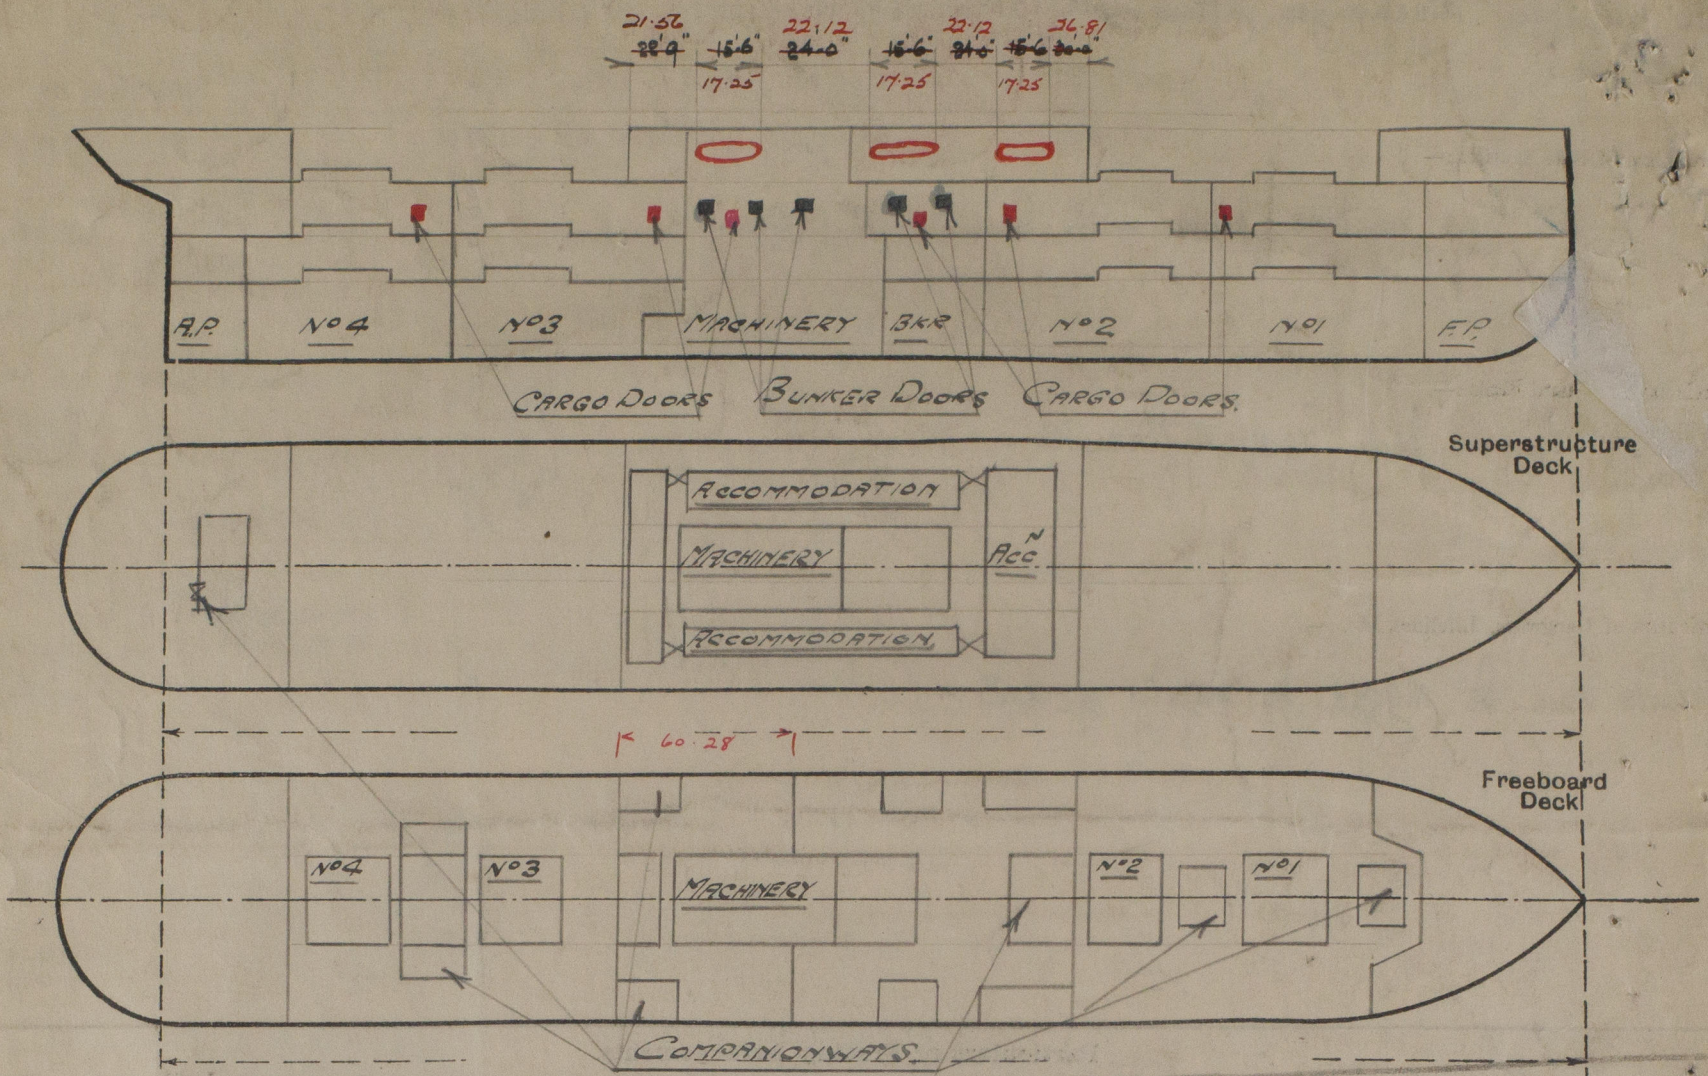 21·56 22·12 22·12 26·81
15'6" 24'0" 15'6" 15'6
17·25 17·25 17·25
A.P. Nº4 Nº3 MACHINERY BKR Nº2 Nº1 F.P.
CARGO DOORS BUNKER DOORS CARGO DOORS.
Superstructure
Deck
ACCOMMODATION
MACHINERY ACCᴺ
ACCOMMODATION.
60·28
Freeboard
Deck
Nº4 Nº3 MACHINERY Nº2 Nº1
COMPANIONWAYS.